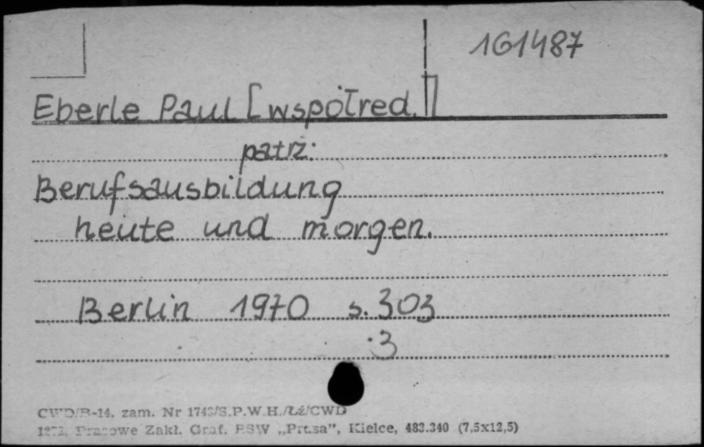 161487
Eberle Paul [współred.]
patrz:
Berufsausbildung
heute und morgen.
Berlin 1970 s. 303
3
CWD/B-14. zam. Nr 1743/S.P.W.H./Łź/CWD
Prasowe Zakł. Graf. RSW „Prasa”, Kielce, 483.340 (7,5x12,5)